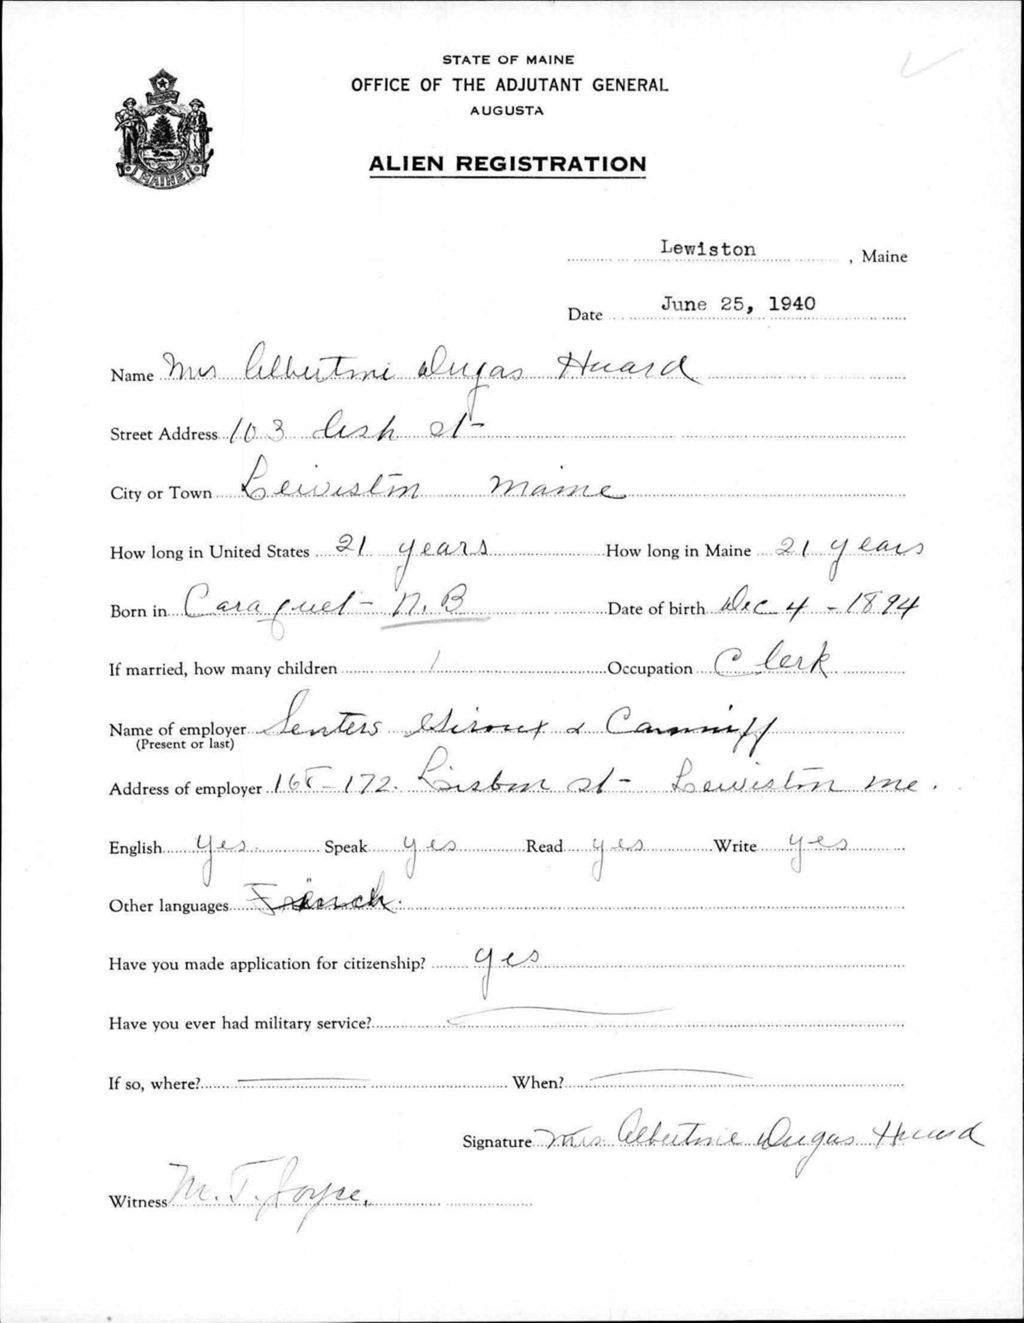 STATE OF MAINE
OFFICE OF THE ADJUTANT GENERAL
AUGUSTA
ALIEN REGISTRATION
MAINE
Lewiston, Maine
Date June 25, 1940
Name Mrs Albertine Dugas Huard
Street Address 103 Ash St
City or Town Lewiston Maine
How long in United States 21 years How long in Maine 21 years
Born in Caraquet - N.B Date of birth Dec 4 - 1894
If married, how many children 1 Occupation Clerk
Name of employer Senters Giroux & Canniff
(Present or last)
Address of employer 168-172. Lisbon St - Lewiston Me.
English yes. Speak yes Read yes Write yes
Other languages French.
Have you made application for citizenship? yes
Have you ever had military service?
If so, where? When?
Signature Mrs. Albertine Dugas Huard
Witness M. T. Joyce,